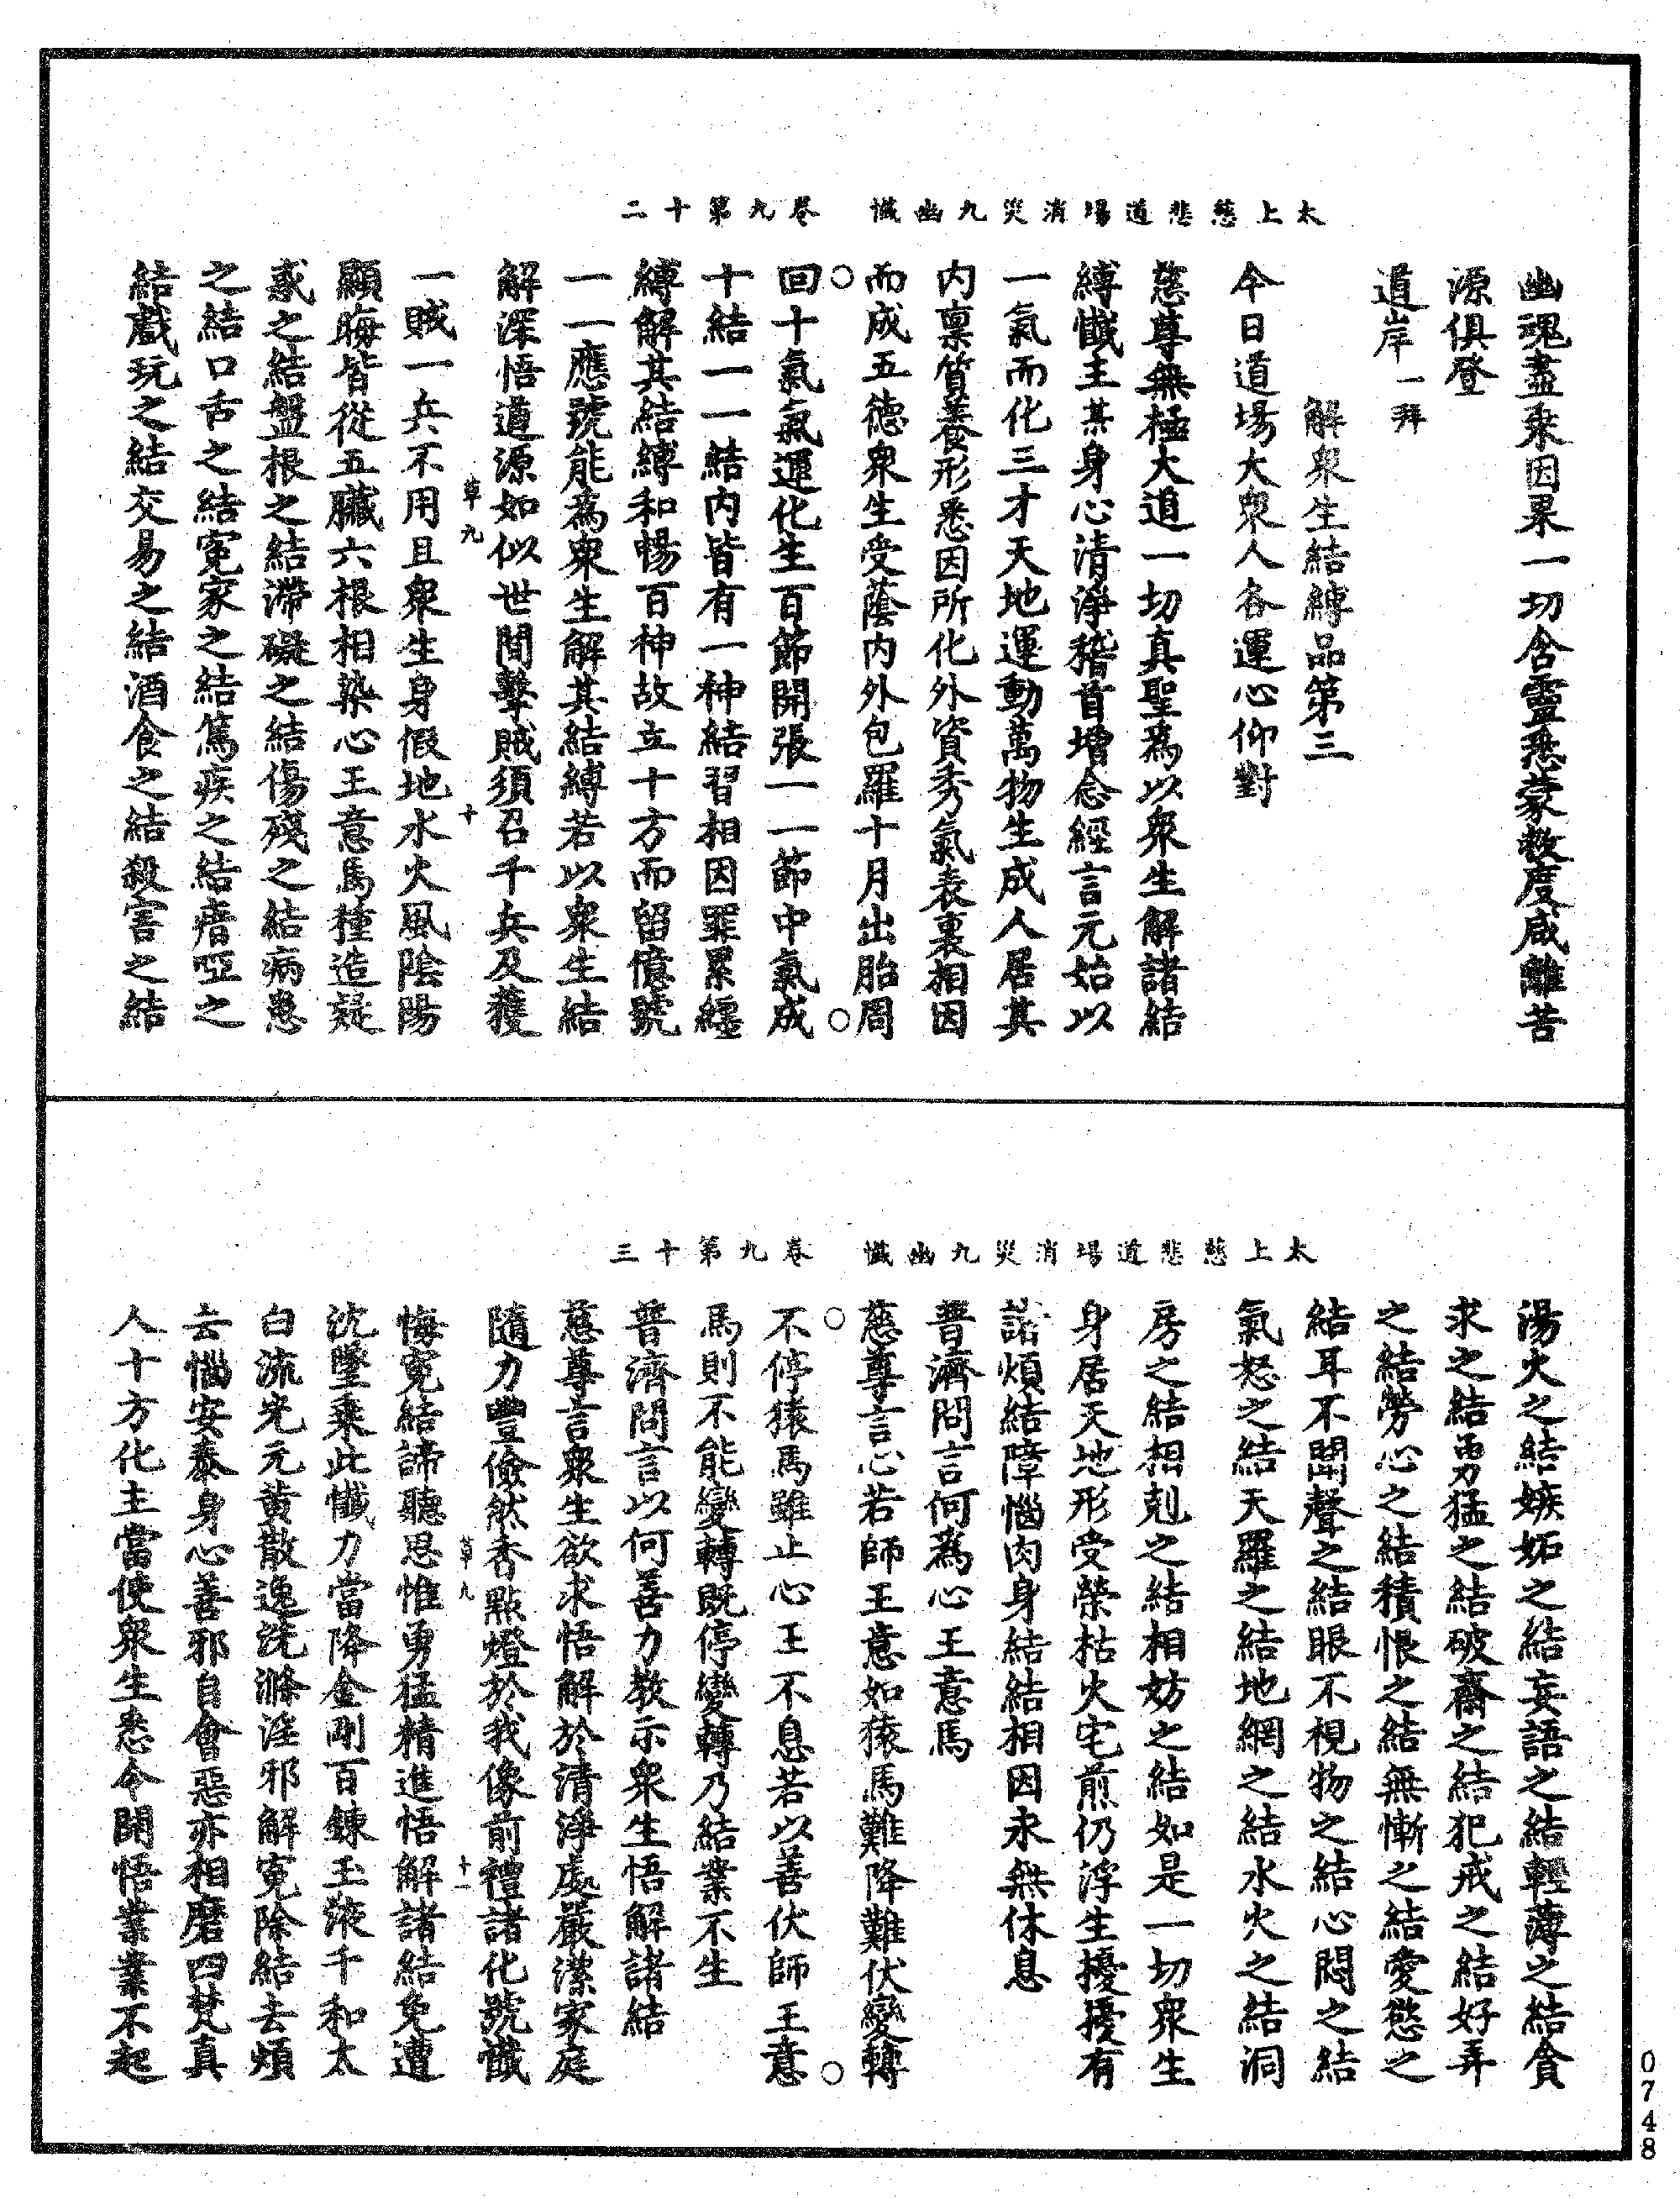 太上慈悲道場消災九幽懺　卷九第十二
幽魂盡乘因果一切含靈悉蒙救度咸離苦
源俱登
道岸一拜
解衆生結縛品第三
今日道場大衆人各運心仰對
慈尊無極大道一切真聖爲以衆生解諸結
縛懺主某身心清淨稽首增念經言元始以
一氣而化三才天地運動萬物生成人居其
内禀質養形悉因所化外資秀氣表裏相因
而成五德衆生受蔭内外包羅十月出胎周
○○
回十氣氣運化生百節開張一一節中氣成
十結一一結内皆有一神結習相因罪累纏
縛解其結縛和暢百神故立十方而留億號
一一應號能爲衆生解其結縛若以衆生結
解深悟道源如似世間擊賊須召千兵及獲
草九　十
一賊一兵不用且衆生身假地水火風陰陽
顯晦皆從五臟六根相染心王意馬種造疑
惑之結盤根之結滯礙之結傷殘之結病患
之結口舌之結寃家之結篤疾之結瘖啞之
結戲玩之結交易之結酒食之結殺害之結
太上慈悲道場消災九幽懺　卷九第十三
湯火之結嫉妬之結妄語之結輕薄之結貪
求之結勇猛之結破齋之結犯戒之結好弄
之結勞心之結積恨之結無慚之結愛慾之
結耳不聞聲之結眼不視物之結心悶之結
氣怒之結天羅之結地網之結水火之結洞
房之結相剋之結相妨之結如是一切衆生
身居天地形受榮枯火宅煎仍浮生擾擾有
諸煩結障惱肉身結結相因永無休息
普濟問言何爲心王意馬
慈尊言心若師王意如猿馬難降難伏變轉
○○
不停猿馬雖止心王不息若以善伏師王意
馬則不能變轉既停變轉乃結業不生
普濟問言以何善力教示衆生悟解諸結
慈尊言衆生欲求悟解於清淨處嚴潔家庭
隨力豐儉然香點燈於我像前禮諸化號懺
草九　十一
悔寃結諦聽思惟勇猛精進悟解諸結免遭
沈墜乘此懺力當降金剛百鍊玉液千和太
白流光元黄散逸洗滌淫邪解寃除結去煩
去惱安泰身心善邪自會惡亦相磨四梵真
人十方化主當使衆生悉令開悟業業不起
0748